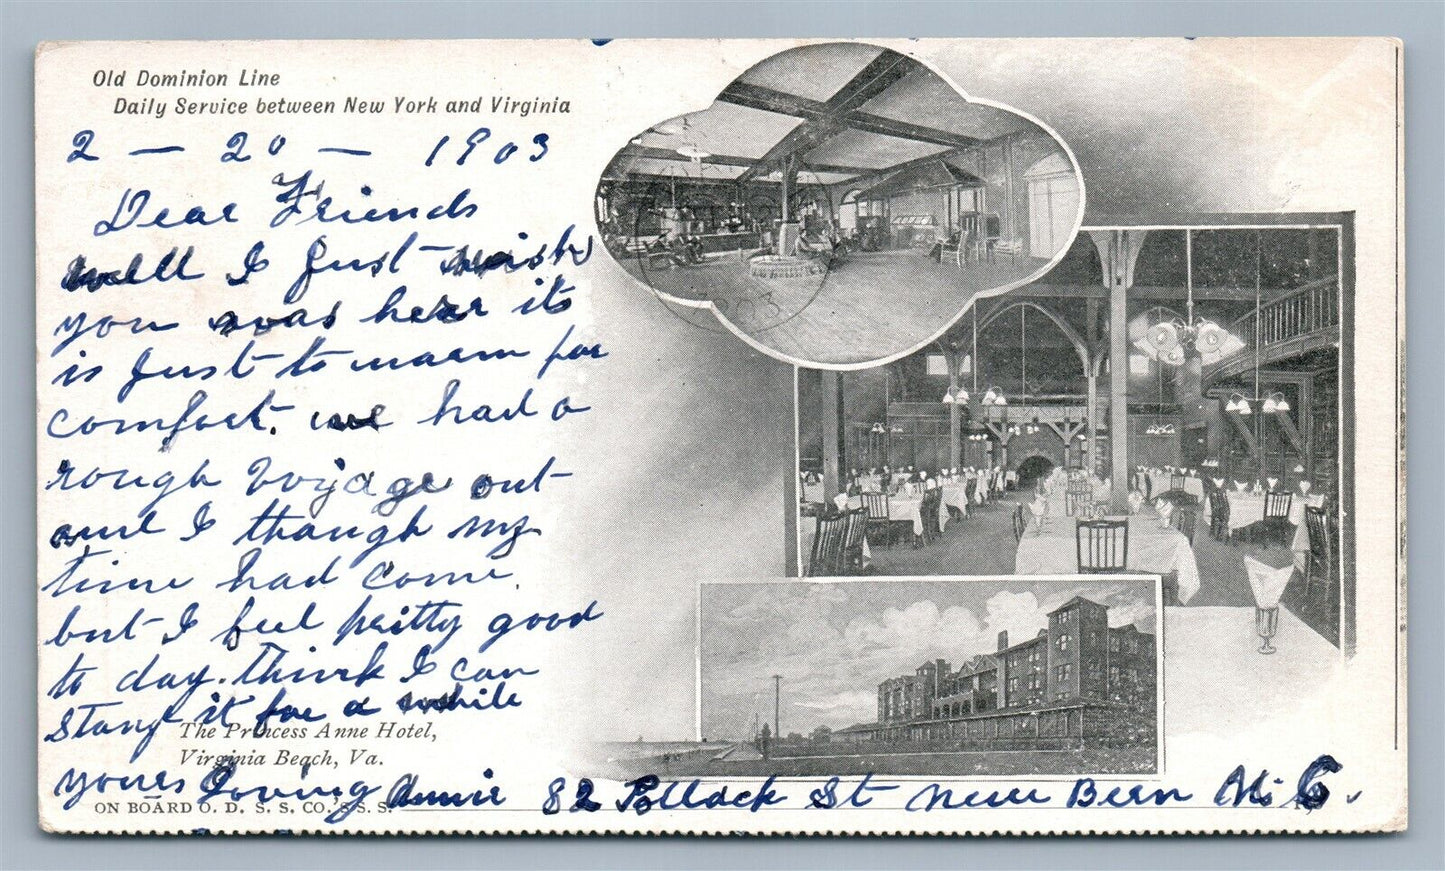 Old Dominion Line
Daily Service between New York and Virginia
2 — 20 — 1903
Dear Friends
well I just wish
you was hear it
is just to warm for
comfort. we had a
rough Voyage out
and I though my
time had come.
but I feel pritty good
to day. think I can
stand it for a while
The Princess Anne Hotel,
Virginia Beach, Va.
yours Loving Annie 82 Pollock St New Bern N. C.
ON BOARD O. D. S. S. CO.'S S. S.
1903